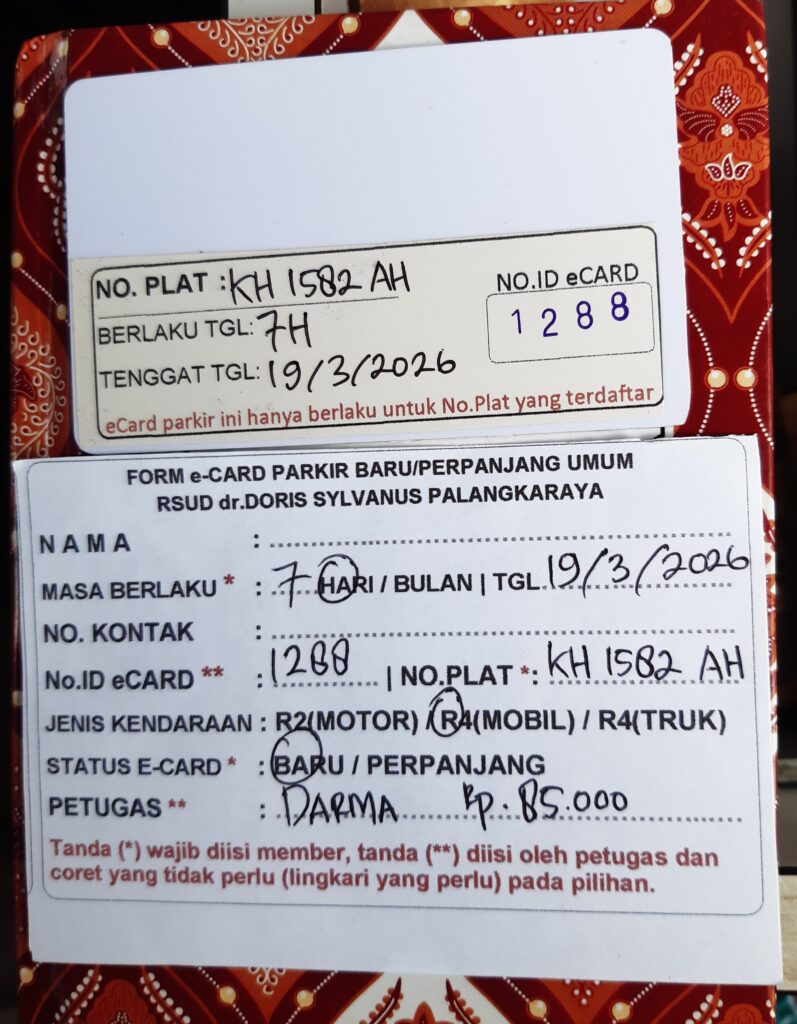 NO. PLAT : KH 1582 AH
NO.ID eCARD
1288
BERLAKU TGL: 7H
TENGGAT TGL: 19/3/2026
eCard parkir ini hanya berlaku untuk No.Plat yang terdaftar
FORM e-CARD PARKIR BARU/PERPANJANG UMUM
RSUD dr.DORIS SYLVANUS PALANGKARAYA
NAMA :
MASA BERLAKU * : 7 HARI / BULAN | TGL. 19/3/2026
NO. KONTAK :
No.ID eCARD ** : 1288 | NO.PLAT *: KH 1582 AH
JENIS KENDARAAN : R2(MOTOR) / R4(MOBIL) / R4(TRUK)
STATUS E-CARD * : BARU / PERPANJANG
PETUGAS ** : DARMA Rp. 85.000
Tanda (*) wajib diisi member, tanda (**) diisi oleh petugas dan
coret yang tidak perlu (lingkari yang perlu) pada pilihan.